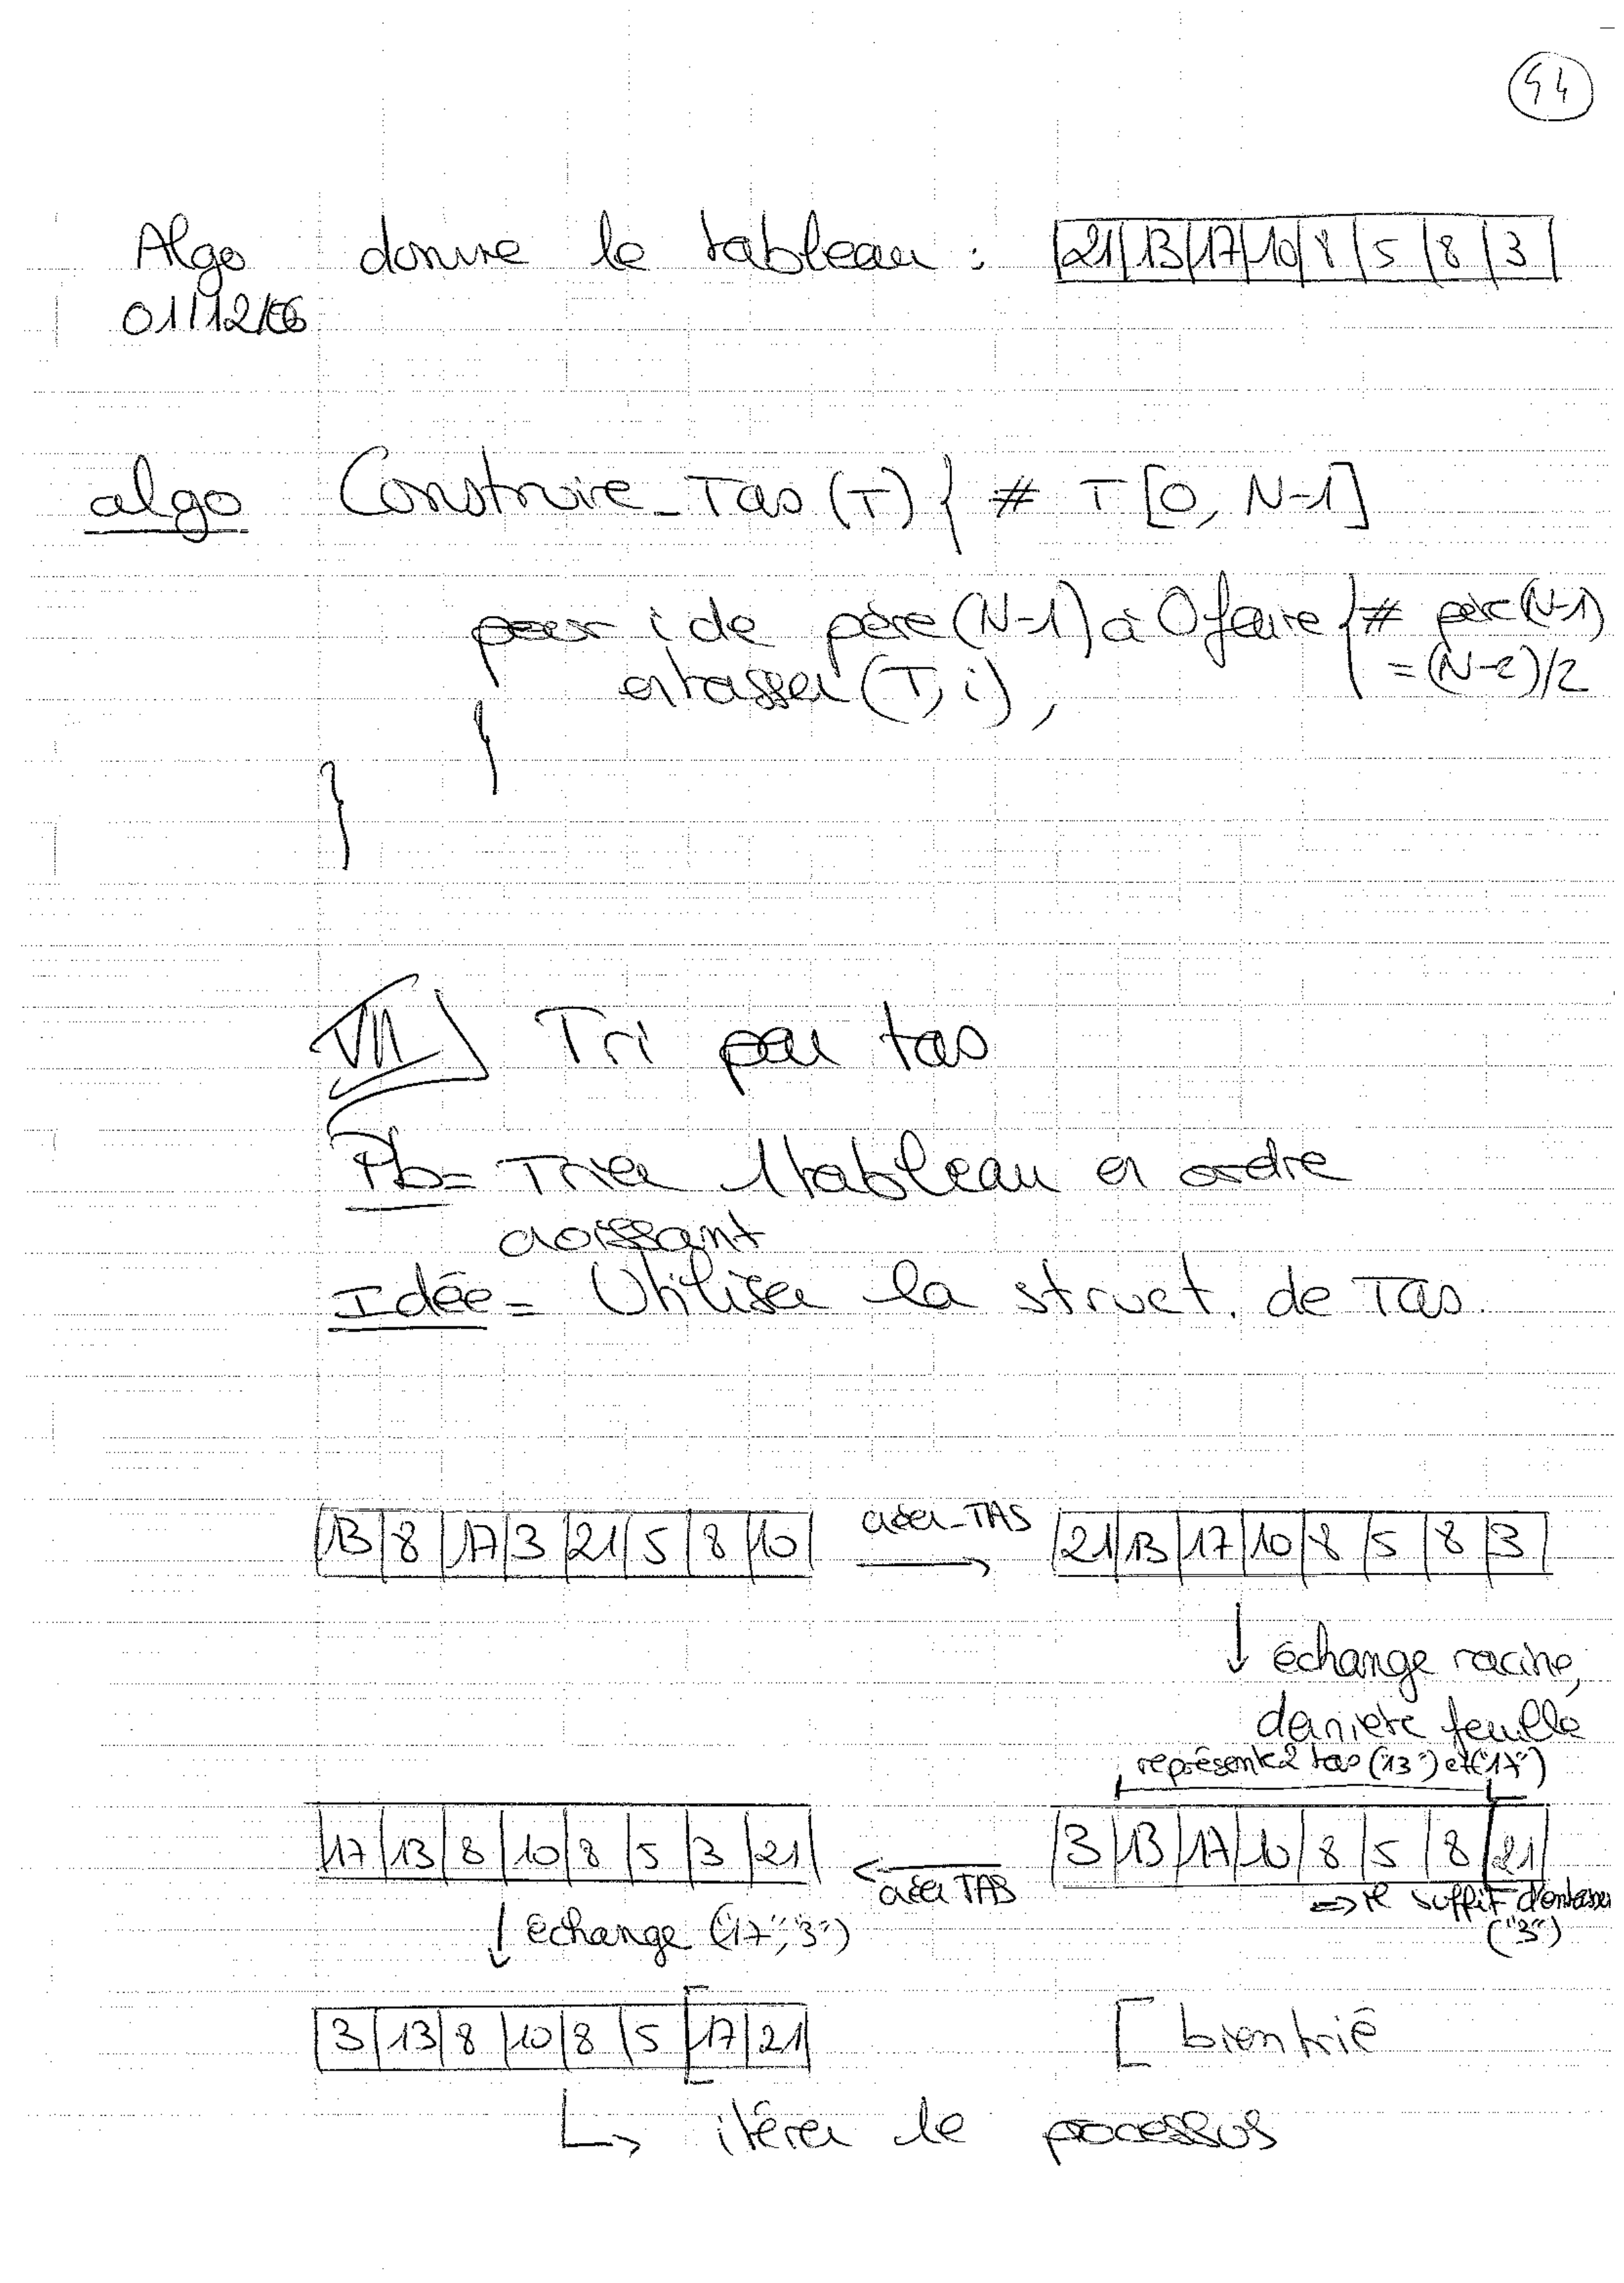 54
Algo donne le tableau : |21|13|17|10|8|5|8|3|
01/12/06
algo Construire_Tas (T) { # T [0, N-1]
pour i de père (N-1) à 0 faire { # père (N-1)
entasser (T, i) ; = (N-2)/2
}
}
VII) Tri par tas
Pb = Trier 1 tableau en ordre
croissant
Idée = Utiliser la struct. de Tas.
|13|8|17|3|21|5|8|10| créer_TAS → |21|13|17|10|8|5|8|3|
↓ échange racine,
dernière feuille
représente 2 tas ("13") et ("17")
|17|13|8|10|8|5|3|21| ← créer TAS |3|13|17|10|8|5|8|21|
⇒ il suffit d'entasser
("3")
↓ échange ("17", "3")
|3|13|8|10|8|5[17|21| [ bien trié
↳ itérer le processus